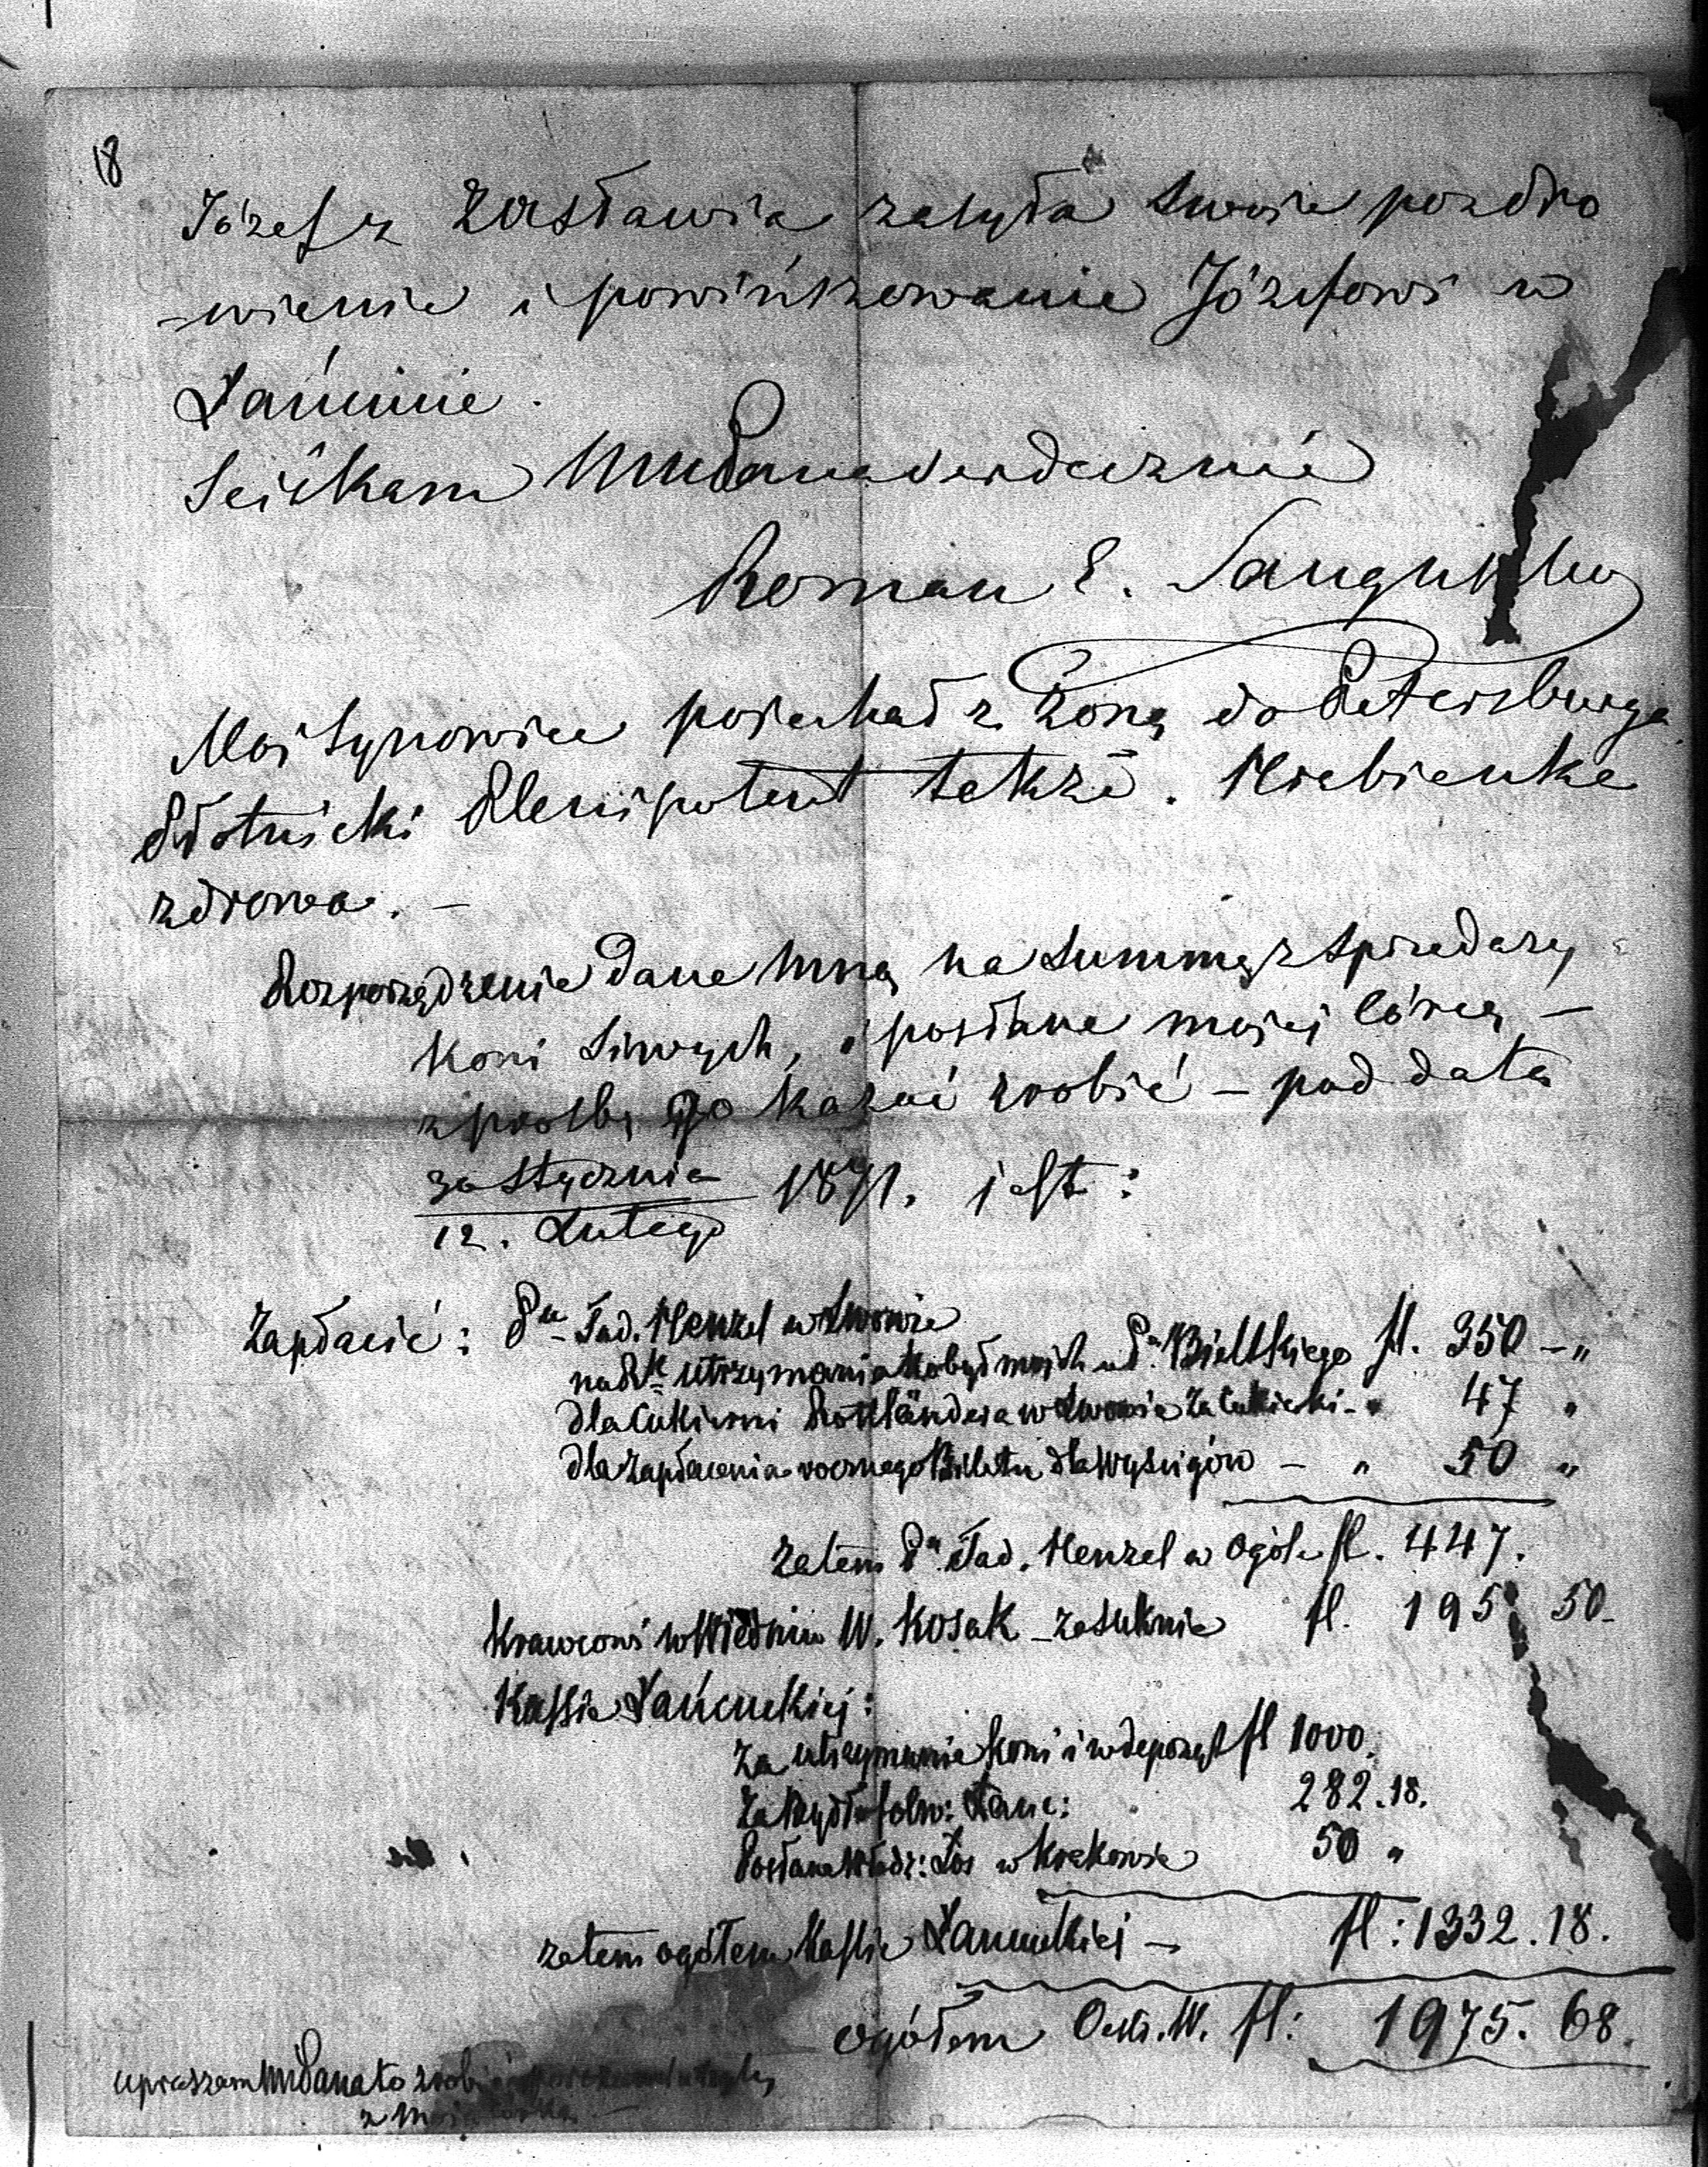 18
Józef z Zasławia zasyła swoie pozdro
-wienie i powińszowanie Józefowi w
Łańcucie.
Sciskam WMPana serdecznie
Roman E. Sanguszko
Moi Synowice poiechał z Żoną do Petersburga
Płotnicki Plenipotent także. Hrabianka
zdrowa. —
Rozporządzenie dane mną na summę z sprzedazy
koni siwych, i posłane moiej Córcę —
z prosbą go kazać zrobić — pod datą
30 Stycznia 1871. iest:
12. Lutego
Zapłacić: Pu Tad. Henzel w Lwowie
na Rk utrzymania kobył moich u P. Bielskiego fl. 350 — „
dla Cukierni Rottländera w Lwowie za Cukierki - „ 47 „
dla zapłacenia rocznego Biletu dla Wyscigów — „ 50 „
zatem Pu Tad. Henzel w ogóle fl. 447.
Krawcowi w Wiedniu W. Kosak — za suknie fl. 195 50-
Kassie Łańcuckiej:
Za utrzymanie koni i w depozyt fl 1000.
Za bydło folw: Łanc: 282.18.
Posłane Władz: Łos w Krakowie 50 „
zatem ogółem Kassie Łancuckiej — fl: 1332.18.
ogółem Oest. W. fl: 1975. 68.
upraszam WMPana to zrobić
z moią Córką —